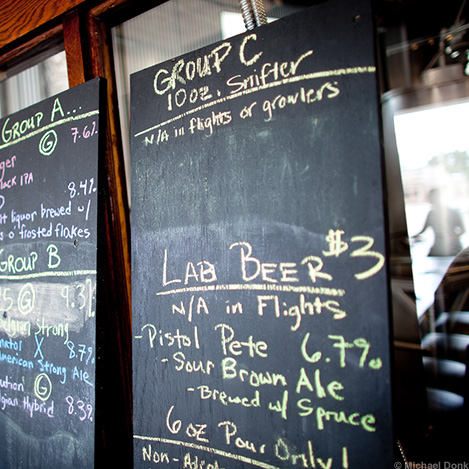 GROUP A...
G
7.6%
lack IPA
8.4%
liquor brewed w/
o' frosted flakes
GROUP B
G
9.3%
Strong
X 8.8%
merican Strong Ale
G
8.3%
gian Hybrid
GROUP C
10oz. Snifter
N/A in flights or growlers
LAB BEER $3
N/A in Flights
- Pistol Pete 6.7%
- Sour Brown Ale
- Brewed w/ Spruce
6oz Pour Only!
© Michael Donk